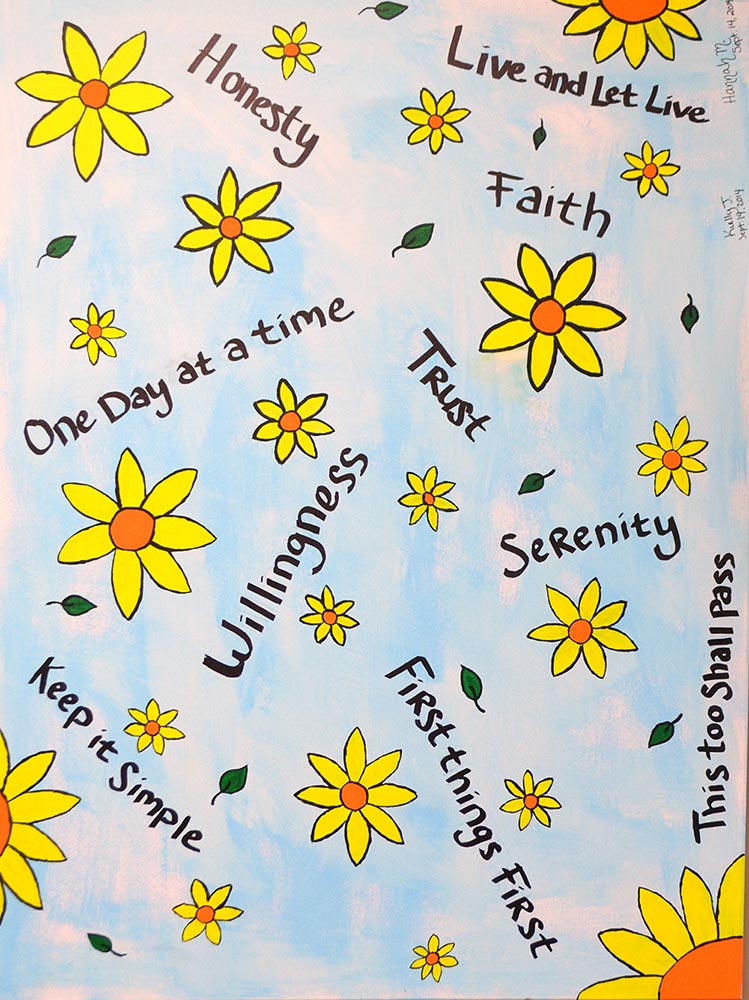 Honesty
Live and Let Live
Hannah M.
Sept. 14, 2014
Faith
Kelly J.
Sept. 14, 2014
One Day at a time
Trust
Willingness
Serenity
This too Shall Pass
Keep it Simple
First things First